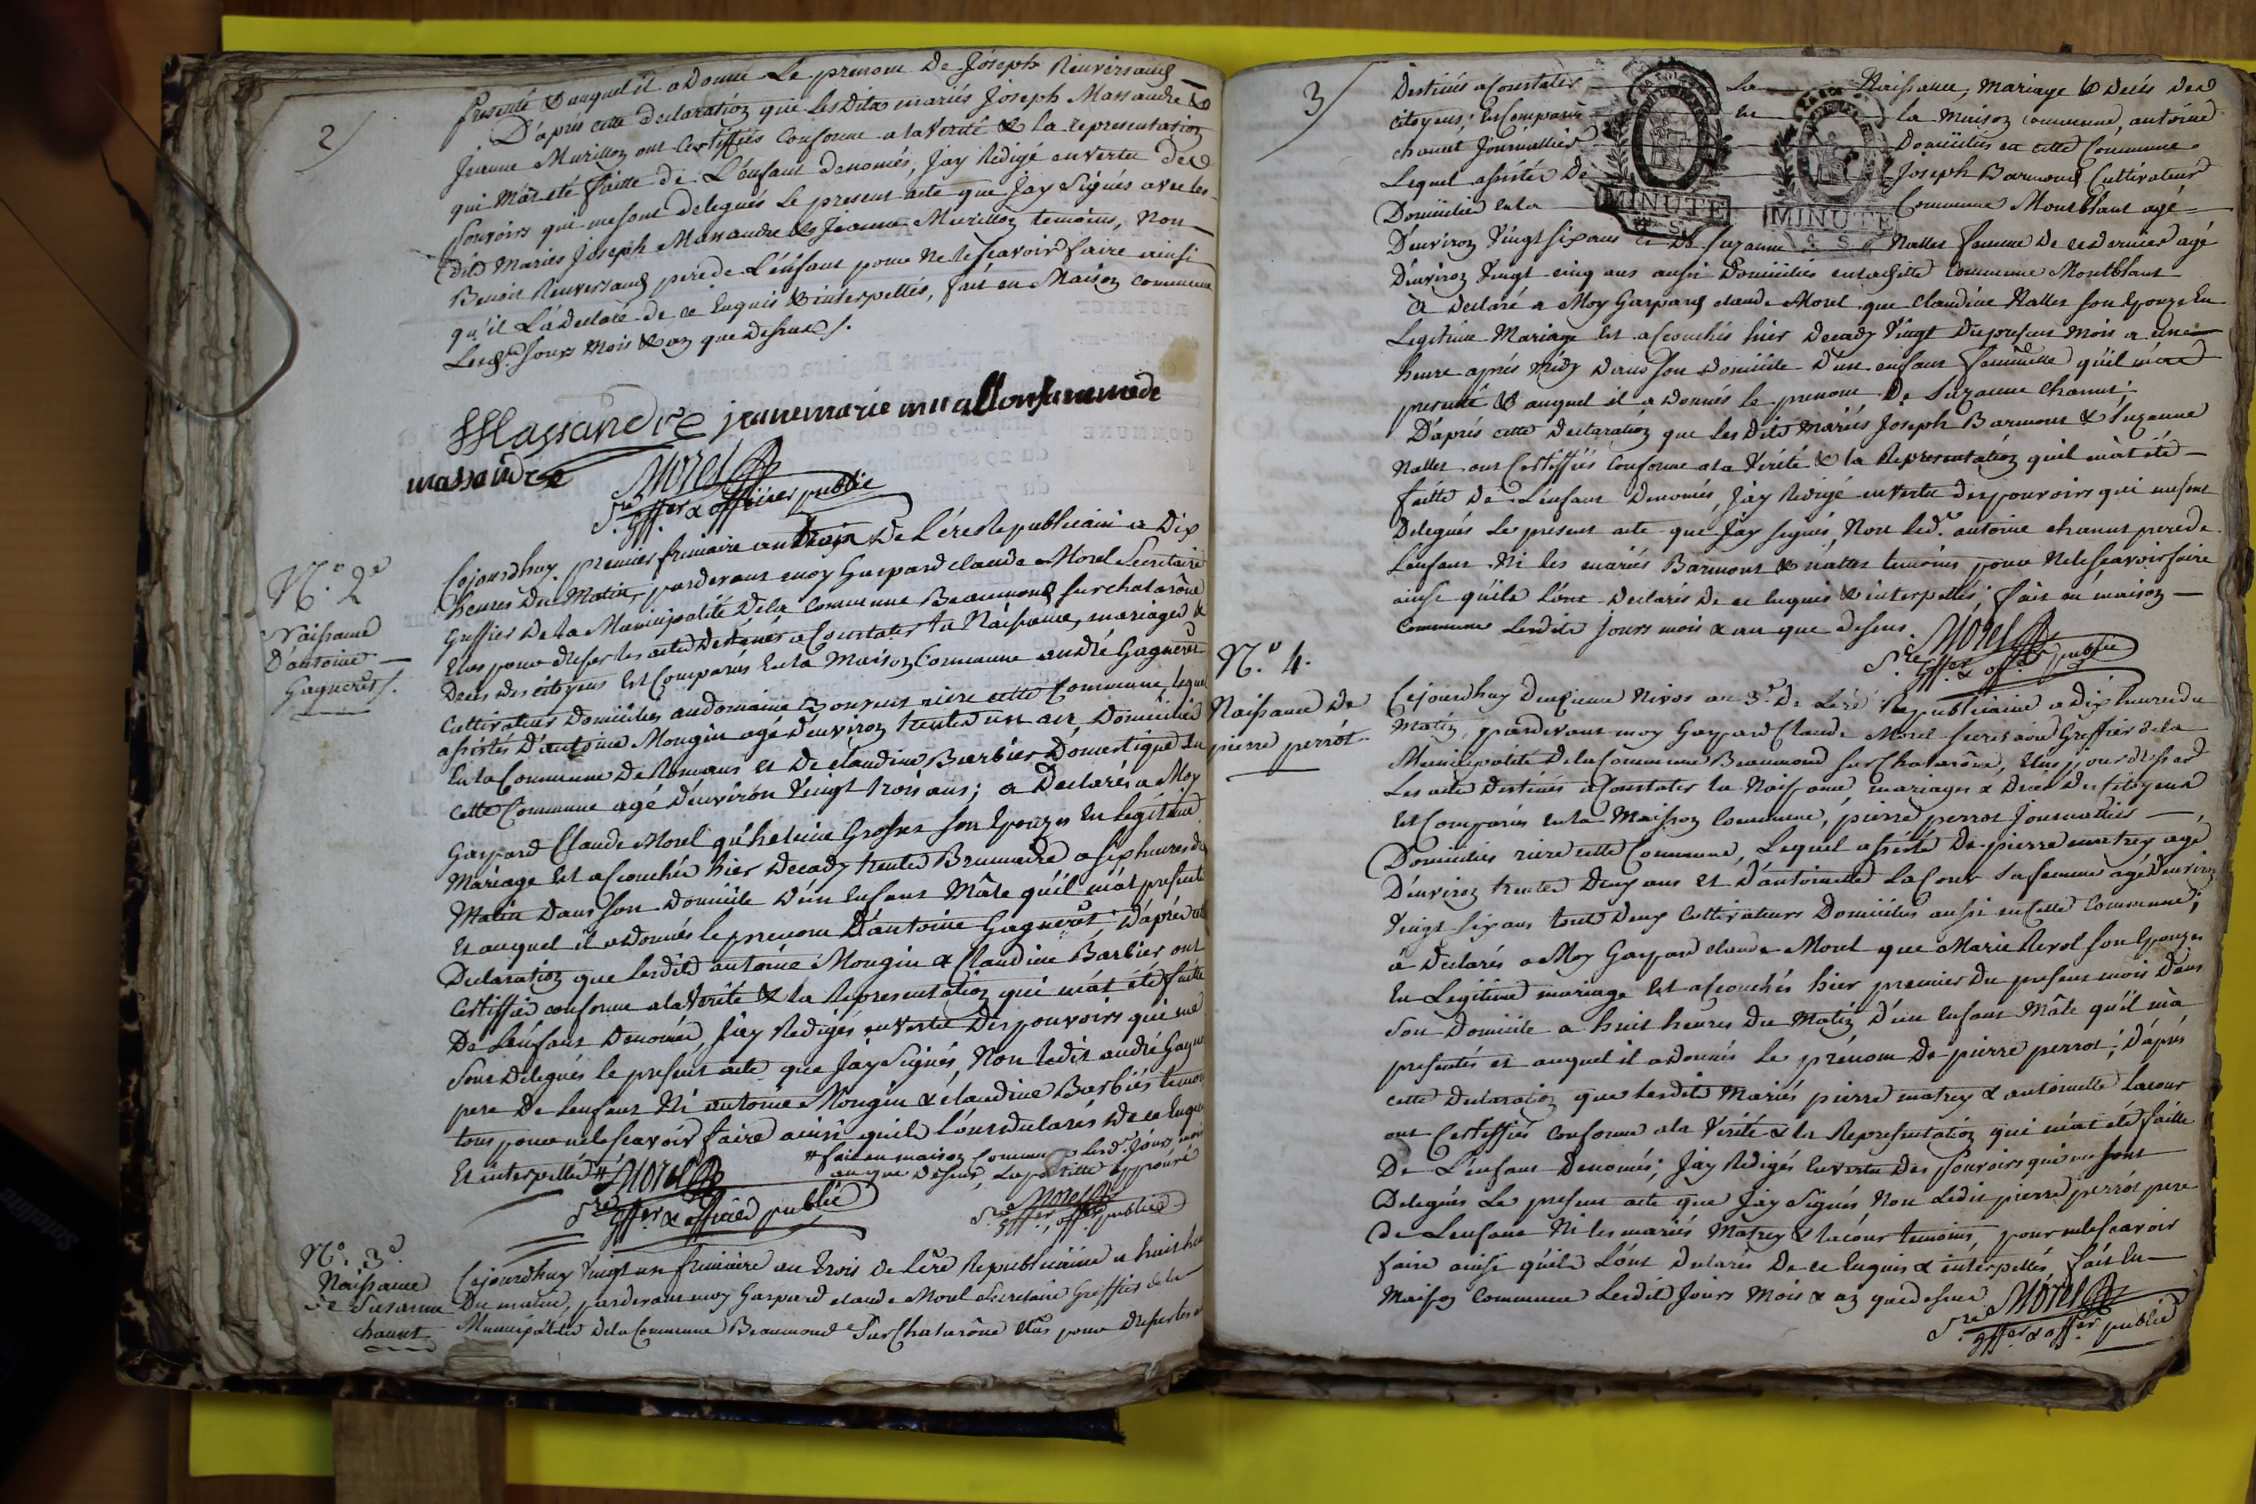 2/
presenté & auquel il a donné Le prenom De Joseph Renversaud
D'aprés cette declaration que Lesdits mariés Joseph Massandre &
Jeanne Murillon ont Certiffiés Conforme a la Verité & la representation
qui M'at eté faitte de L'enfant denomés, Jay Redigé en vertu des
pouvoirs qui me sont delegués Le present acte que Jay Signés avec les
dits Mariés Joseph Massandre & Jeanne Murillon temoins, Non
Benoit Renversaud pere de L'enfant pour Ne le Scavoir faire ainsi
qu'il L'a Declaré de ce Enquis & interpellés, fait en Maison Commune
Lesd. Jours Mois & an que dessus /.
JMassandre jeanemarie murallon famme de
massandre
Morel
S.re Gffer & officier public
N.o 2.e
Naissance
D'antoine
Gagneret /.
Cejourdhuy premier frimaire an trois De L'ére Republicaine a Dix
heures Du Matin, pardevant moy Gaspard claude Morel Secretaire
Greffier De la Municipalité De la Commune Beaumond sur chalarône
Elus pour dresser les actes Destinés a Constater la Naissance, mariages &
Deces des citoyens Est Comparus En la Maison Commune andré Gagneret
Cultivateur Domiciliés au domaine riere cette Commune, lequel
assistés D'antoine Mongin agé D'environ trente un an Domicilié
En la Commune De Romans et De claudine Barbier Domestique En
cette Commune agé d'environ Vingt trois ans; a Declarés a Moy
Gaspard Claude Morel qu'helaine Grosset son Epouze En Legitime
Mariage Est acouchée hier Decady trente Brumaire a six heures du
Matin Dans son Domicile D'un Enfant Mâle qu'il m'at presenté
Et auquel il a donnés le prenom D'antoine Gagneret, D'aprés cette
Declaration que Lesdits antoine Mongin & Claudine Barbier ont
Certiffié conforme a la Verité & la Representation qui m'at été faitte
De L'enfant Denomés, Jay Redigés en vertu Des pouvoirs qui me
Sont Delegués le present acte que Jay Signés, Non ledit andré Gagne
pere De Lenfant Ni antoine Mongin & claudine Barbier temoi
tous pour ne le scavoir faire ainsi qu'ils L'ont declarés De ce Enqui
Et interpellés #
# fait en maison Commune Lesd. Jours mois
an que Dessus, La postille approuvé
Morel
S.re Gffer & officier public
Morel
S.re Gffer, offer public
N.o 3.e
Naissance
De Susanne
chanut
Cejourdhuy Vingt un frimaire an trois de L'ére Republicaine a huit heu
Du matin, pardevant moy Gaspard claude Morel Secretaire Greffier de la
Municipalité De la Commune Beaumond Sur Chalarône Elus pour Dresser les a
3/
Destinés a Constater La Naissance, Mariage & Decés Des
citoyens, Est Comparu En la Maison commune, antoine
chanut Journallier Domicilies en cette Commune
Lequel assistés De Joseph Barmond Cultivateur
Domicilié en la Commune Montblant agé
D'environ Vingt six ans et De Suzanne Nallet femme De ce dernier agé
D'environ Vingt cinq ans aussi Domiciliés en ladite Commune Montblant
a declaré a Moy Gaspard claude Morel que claudine Nallet son Epouze En
Legitime Mariage Est acouchés hier Decady Vingt Du present Mois a une
heure aprés Midy Dans son Domicile D'un enfant femmelle qu'il m'at
presenté & auquel il a donnés le prenom De Suzanne chanut;
D'aprés cette Declaration que les Dits Mariés Joseph Barmont & Suzanne
Nallet ont Certiffiés Conforme a la Verité & la Representation qu'il m'at été
faitte De L'enfant Denomés, Jay Redigé en vertu des pouvoirs qui me sont
Delegués Le present acte que Jay signés, Non led. antoine chanut pere de
Lenfant Ni les mariés Barmont & nallet temoins pour Ne le scavoir faire
ainsi qu'ils L'ont Declarés De ce Enquis & interpellés; fait en maison
commune Lesdits Jours mois & an que Dessus.
Morel
S.re Gffer & offer public
N.o 4.
Naissance De
pierre perrot.
Cejourdhuy Deuxieme Nivos an 3.e De L'éré Republicaine a dix heures du
Matin, pardevant moy Gaspard Claude Morel Secretaire Greffier de la
Municipalité De la Commune Beaumond sur Chalarône, Elus pour dresser
Les actes Destinés a Constater la Naissance, mariages & Decés Des Citoyens
Est Comparus En la Maison Commune, pierre perrot Journallier
Domiciliés riere cette Commune, Lequel assisté De pierre matrey agé
D'environ trente Deux ans Et D'antoinette Lacour sa femme agé D'environ
Vingt six ans tous Deux Cultivateurs Domiciliés aussi en cette Commune;
a Declarés a Moy Gaspard claude Morel que Marie Revol son Epouze
En Legitime mariage Est acouchés hier premier Du present mois Dans
son Domicile a huit heures Du Matin D'un Enfant Mâle qu'il m'a
presentés et auquel il a donnés Le prénom De pierre perrot; D'aprés
cette Declaration que Lesdits Mariés pierre matrey & antoinette Lacour
ont Certiffiés Conforme a la Vérité & la Representation qui m'at été faitte
De L'enfant Denomés; Jay Redigés En vertu Des pouvoirs qui me sont
Delegués Le present acte que Jay Signés Non Ledit pierre perrot pere
de Lenfant Ni les mariés Matrey & lacour temoins, pour ne le scavoir
faire ainsi qu'ils L'ont Declarés De ce Enquis & interpellés, fait En
Maison Commune Lesdits Jours Mois & an que dessus
Morel
S.re Gffer & offer public
MINUTE
MINUTE